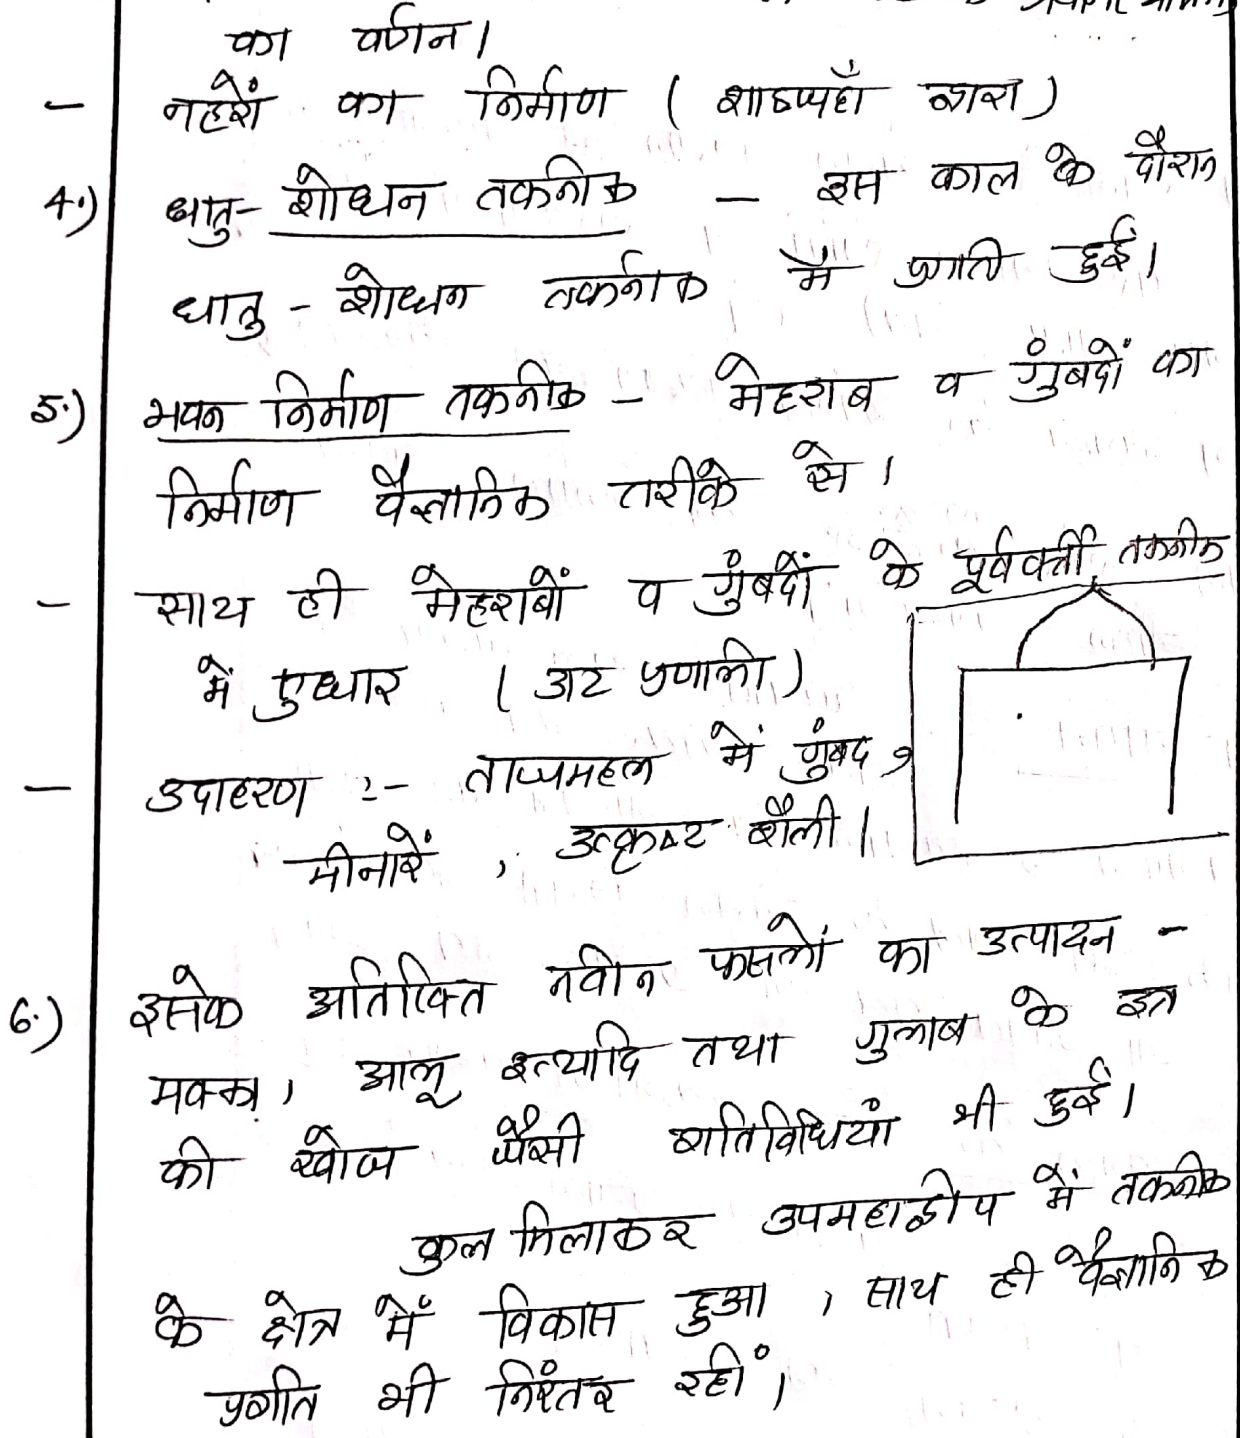 का वर्णन।
- नहरों का निर्माण ( शाहजहाँ द्वारा )
4.) धातु- शोधन तकनीक - इस काल के दौरान
धातु - शोधन तकनीक में प्रगति हुई।
5.) भवन निर्माण तकनीक - मेहराब व गुंबदों का
निर्माण वैज्ञानिक तरीके से।
- साथ ही मेहराबों व गुंबदों के पूर्ववर्ती तकनीक
में सुधार ( प्रणाली )
- उदाहरण :- ताजमहल में गुंबद,
मीनारें, उत्कृष्ट शैली।
6.) इसके अतिरिक्त नवीन फसलों का उत्पादन -
मक्का, आलू इत्यादि तथा गुलाब के इत्र
की खोज जैसी गतिविधियां भी हुई।
कुल मिलाकर उपमहाद्वीप में तकनीक
के क्षेत्र में विकास हुआ, साथ ही वैज्ञानिक
प्रगति भी निरंतर रहीं,